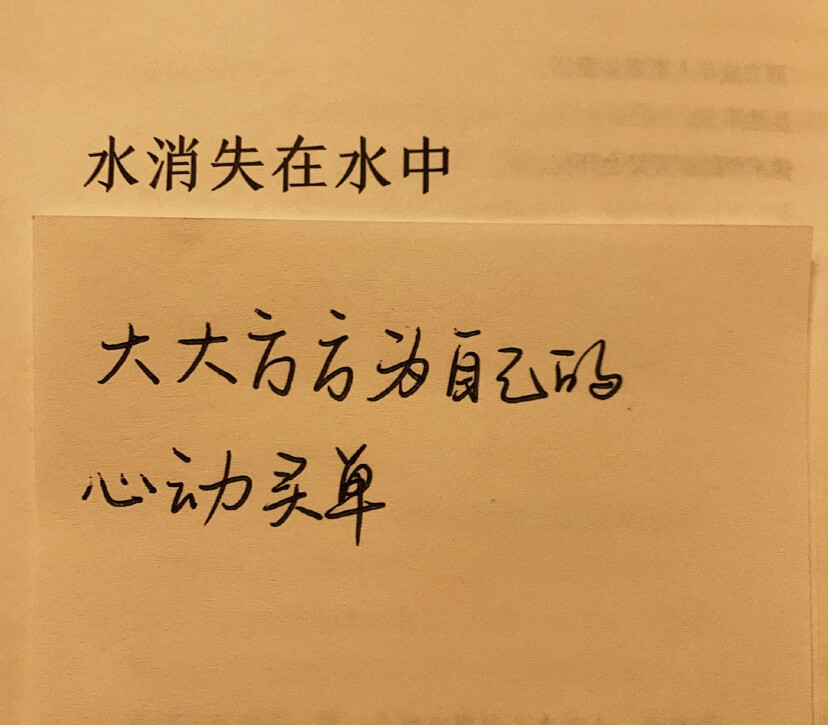 水消失在水中
大大方方为自己的
心动买单